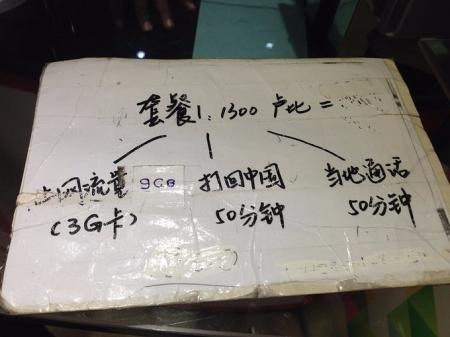 套餐1: 1300 卢比 =
上网流量 9GB
(3G卡)
打回中国
50分钟
当地通话
50分钟